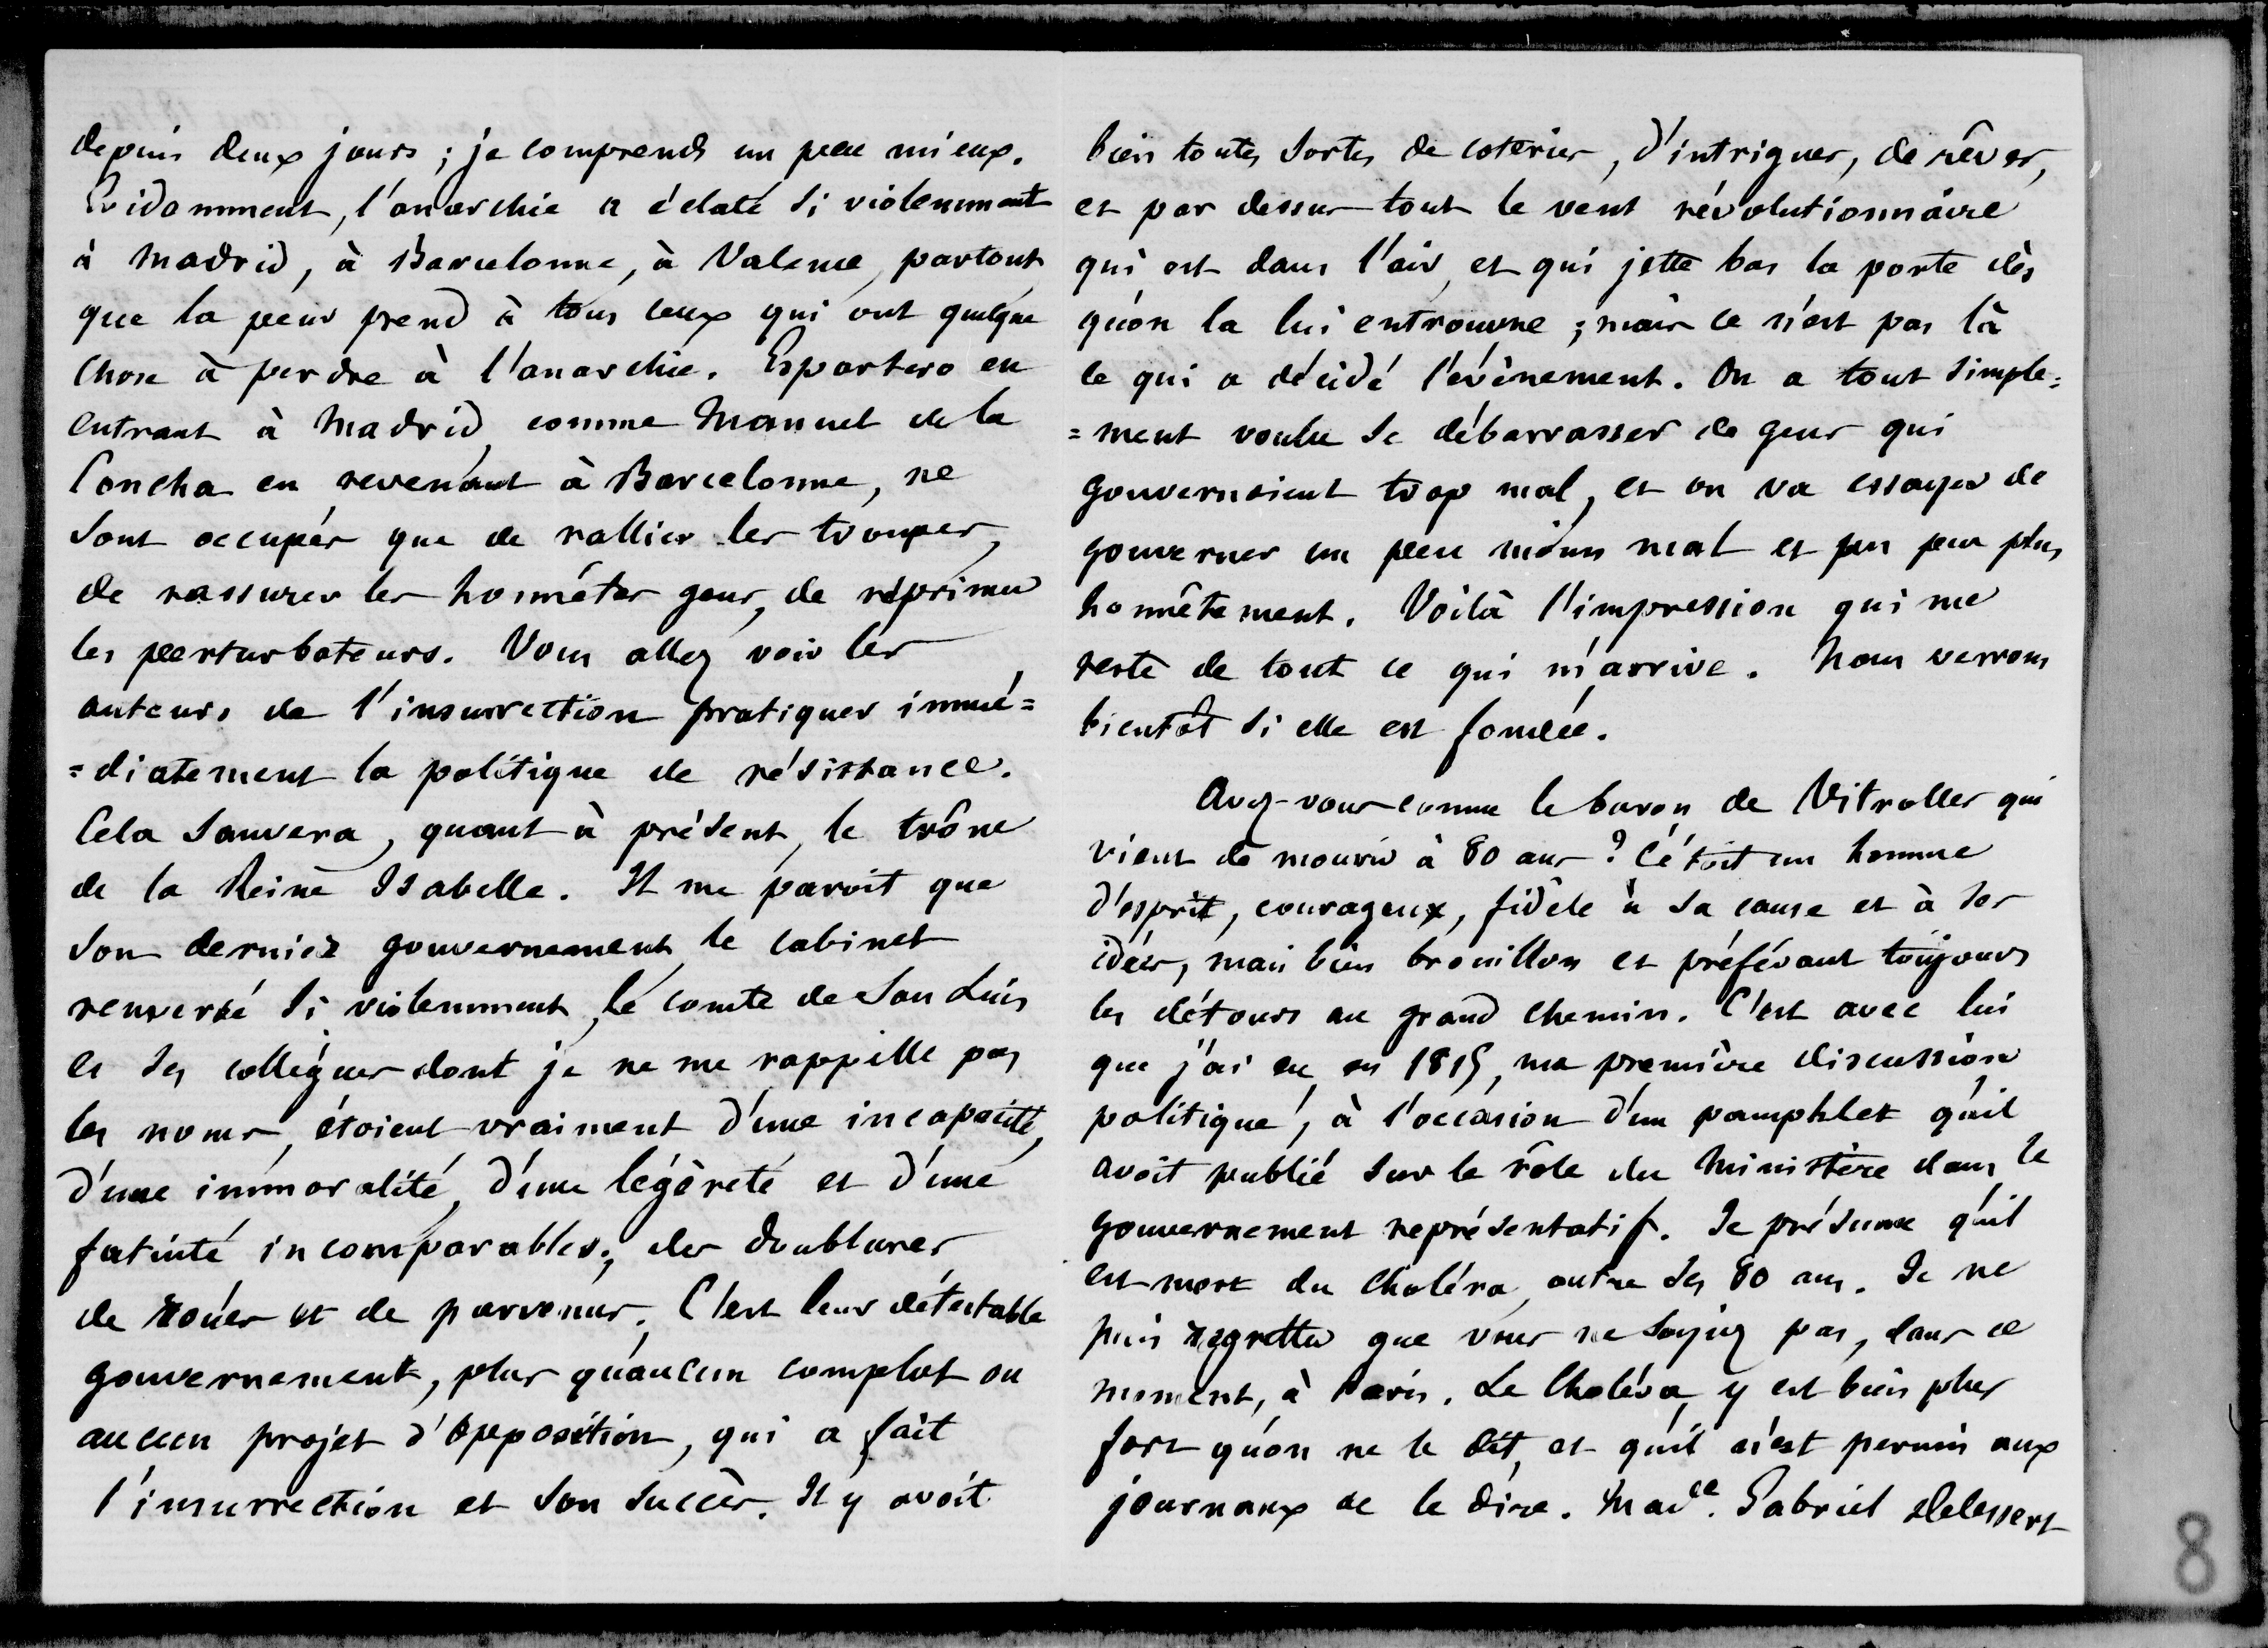 depuis deux jours ; je comprends un peu mieux.
Evidemment, l'anarchie a éclaté si violemment
à Madrid, à Barcelonne, à Valence, partout
que la peur prend à tous ceux qui ont quelque
chose à perdre à l'anarchie. Espartero en
entrant à Madrid, comme Manuel de la
Concha en revenant à Barcelonne, ne
sont occupés que de rallier les troupes,
de rassurer les honnêtes gens, de réprimer
les perturbateurs. Vous allez voir les
auteurs de l'insurrection pratiquer immé=
=diatement la politique de résistance.
Cela sauvera, quant à présent, le trône
de la Reine Isabelle. Il me paroit que
son dernier gouvernement, le cabinet
renversé si violemment, le comte de San Luis
et ses collègues dont je ne me rappelle pas
les noms, étoient vraiment d'une incapacité,
d'une immoralité, d'une légèreté et d'une
fatuité incomparables ; des doublures
de roués et de parvenus. C'est leur détestable
gouvernement, plus qu'aucun complot ou
aucun projet d'opposition, qui a fait
l'insurrection et son succès. Il y avoit
bien toutes sortes de coteries, d'intrigues, de rêves,
et par dessus tout le vent révolutionnaire
qui est dans l'air, et qui jette bas la porte dès
qu'on la lui entrouvre ; mais ce n'est pas là
ce qui a décidé l'évènement. On a tout simple=
=ment voulu se débarrasser de gens qui
gouvernoient trop mal, et on va essayer de
gouverner un peu moins mal et un peu plus
honnêtement. Voilà l'impression qui me
reste de tout ce qui m'arrive. Nous verrons
bientôt si elle est fondée.
Avez-vous connu le baron de Vitrolles qui
vient de mourir à 80 ans ? C'étoit un homme
d'esprit, courageux, fidèle à sa cause et à ses
idées, mais bien brouillon et préférant toujours
les détours au grand chemin. C'est avec lui
que j'ai eu, en 1815, ma première discussion
politique, à l'occasion d'un pamphlet qu'il
avoit publié sur le rôle du Ministère dans le
gouvernement représentatif. Je présume qu'il
est mort du choléra, outre ses 80 ans. Je ne
puis regretter que vous ne soyiez pas, dans ce
moment, à Paris. Le Choléra y est bien plus
fort qu'on ne le dit, et qu'il n'est permis aux
journaux de le dire. Made. Gabriel Delessert
8